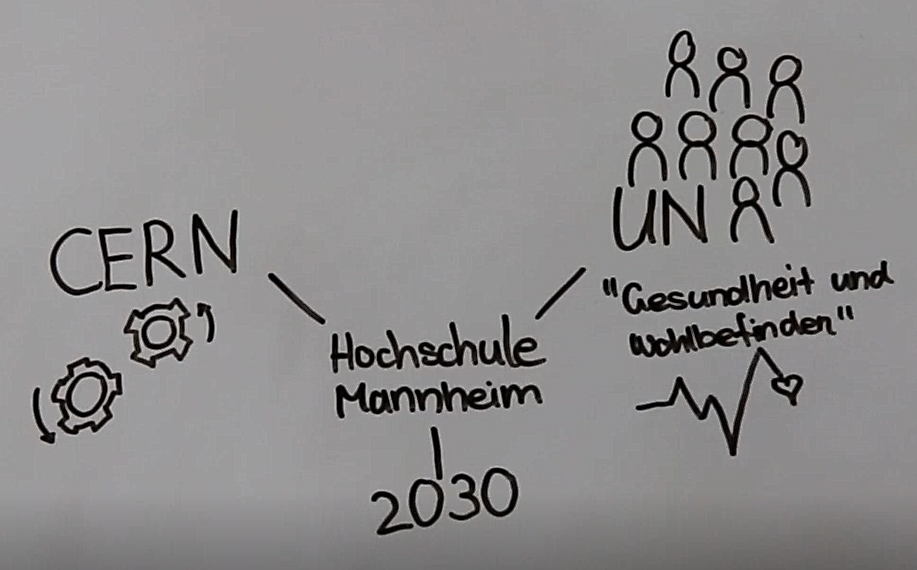 CERN
UN
"Gesundheit und
Wohlbefinden"
Hochschule
Mannheim
2030